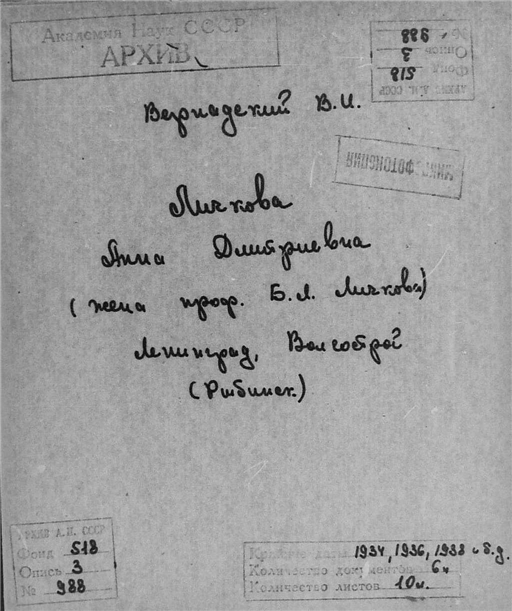 Академия Наук СССР
АРХИВ
№ 988
Опись 3
Фонд 518
АРХИВ А.Н. СССР
Вернадский В.И.
МИКРОФОТОКОПИЯ
Личкова
Анна Дмитриевна
(жена проф. Б.Л. Личкова)
Ленинград, Волгострой
(Рыбинск.)
АРХИВ А.Н. СССР
Фонд 518
Опись 3
№ 988
Крайние даты 1934, 1936, 1938 и б.д.
Количество документов 6
Количество листов 10 л.